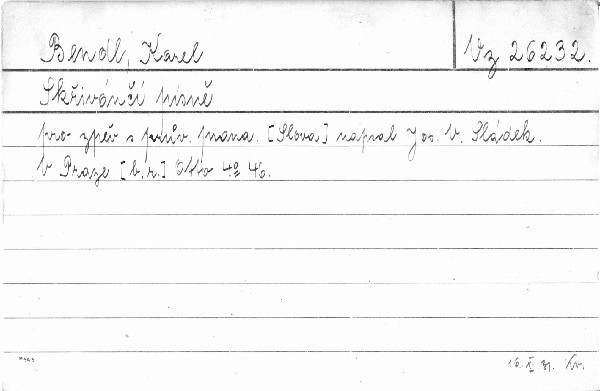 Bendl, Karel
Vz 26232.
Skřivánčí písně
pro zpěv s prův. piana. [Slova] napsal Jos. V. Sládek.
V Praze [b.r.] Otto 4º 46.